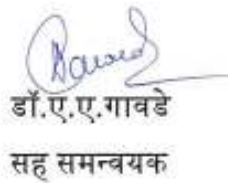 डॉ.ए.ए.गावडे
सह समन्वयक